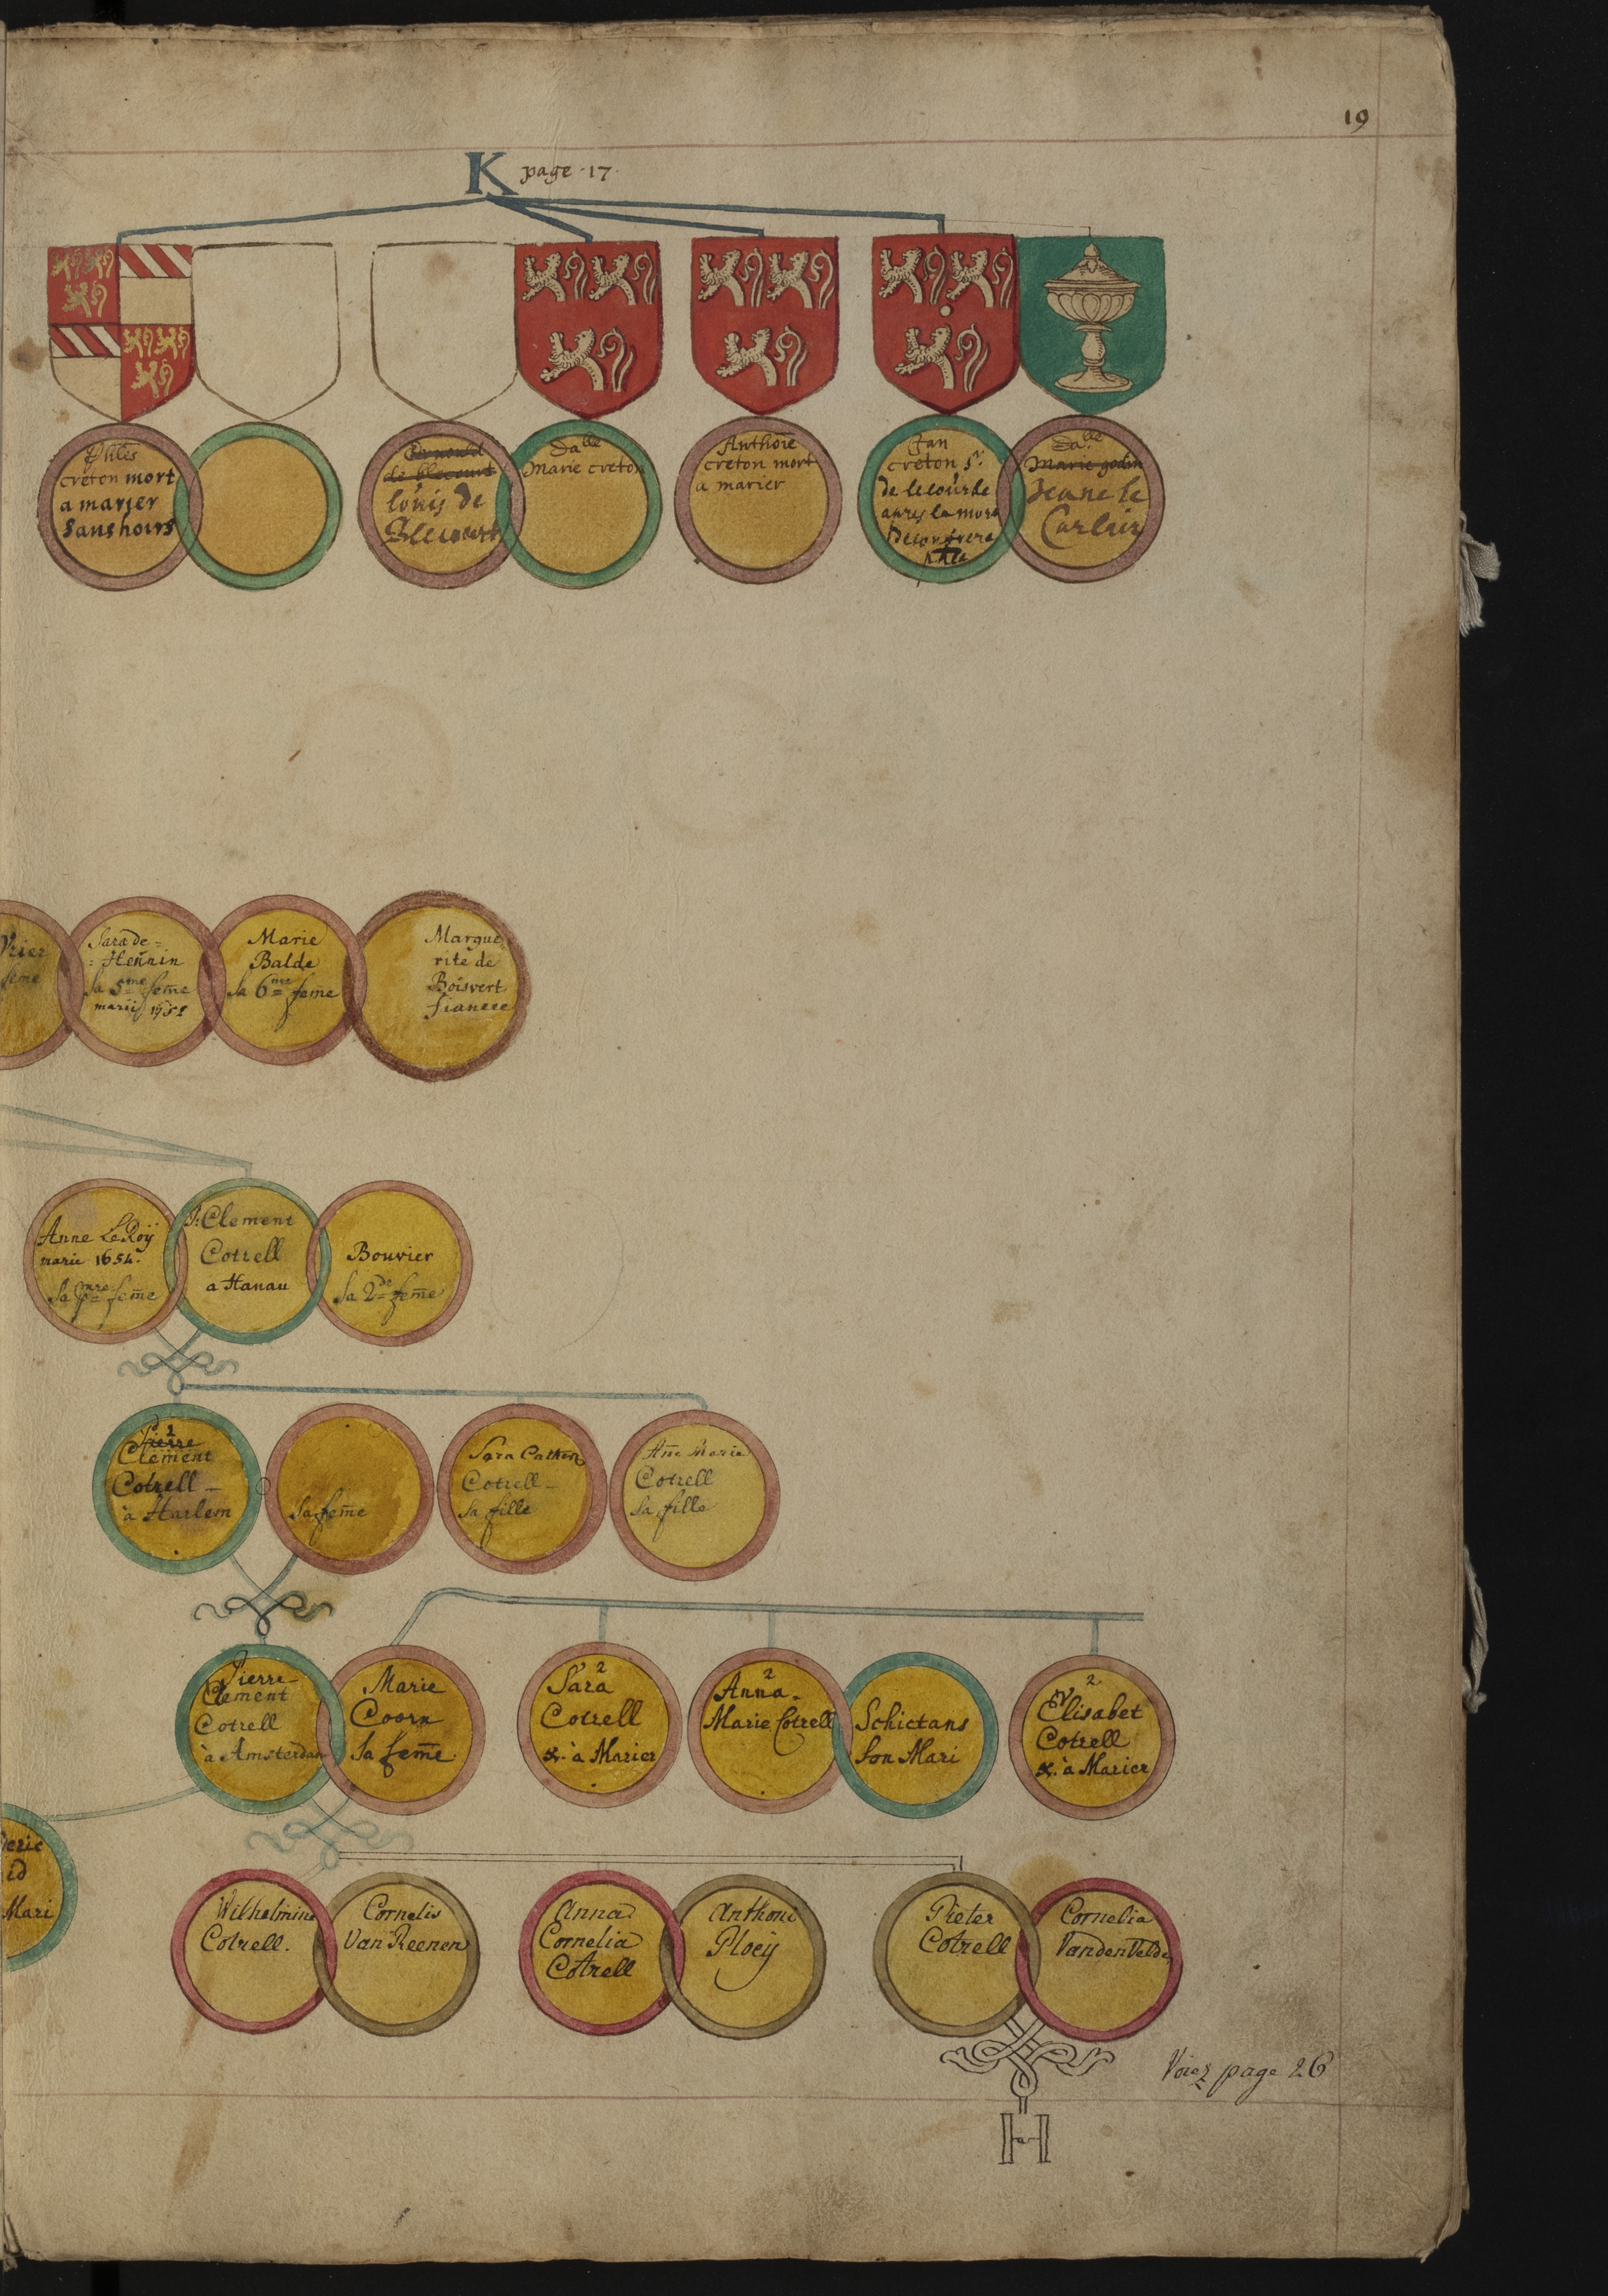 19
K page 17
Phles
creton mort
a marier
sans hoirs
Ernould
de blecourt
louis de
Blecourt
Dalle
Marie creton
Anthoīe
creton mort
a marier
Jan
creton Sr.
de lecourbe
apres la mort
Dalle
Marie godin
Jeane le
Carlier
Sara de =
: Hennin
sa 5me feme
Marie
Balde
sa 6me feme
Margue
rite de
Boisvert
fiancee
feme
Anne Le Roÿ
marie 1654.
sa pmre feme
P: Clement
Cotrell
a Hanau
Bouvier
sa 2de feme
2
Pierre
Clement
Cotrell
à Harlem
sa feme
Sara Cathon
Cotrell
sa fille
Ane Marie
Cotrell
sa fille
Pierre
Clement
Cotrell
à Amsterdam
Marie
Coorn
sa feme
2
Sara
Cotrell
à Marier
2
Anna
Marie Cotrell
Schictans
son Mari
2
Elisabet
Cotrell
à Marier
deric
id
Mari
Wilhelmina
Cotrell.
Cornelis
Van Reenen
Anna
Cornelia
Cotrell
Anthoni
Ploeÿ
Pieter
Cotrell
Cornelia
Vanden Velde
Voiez page 26
H